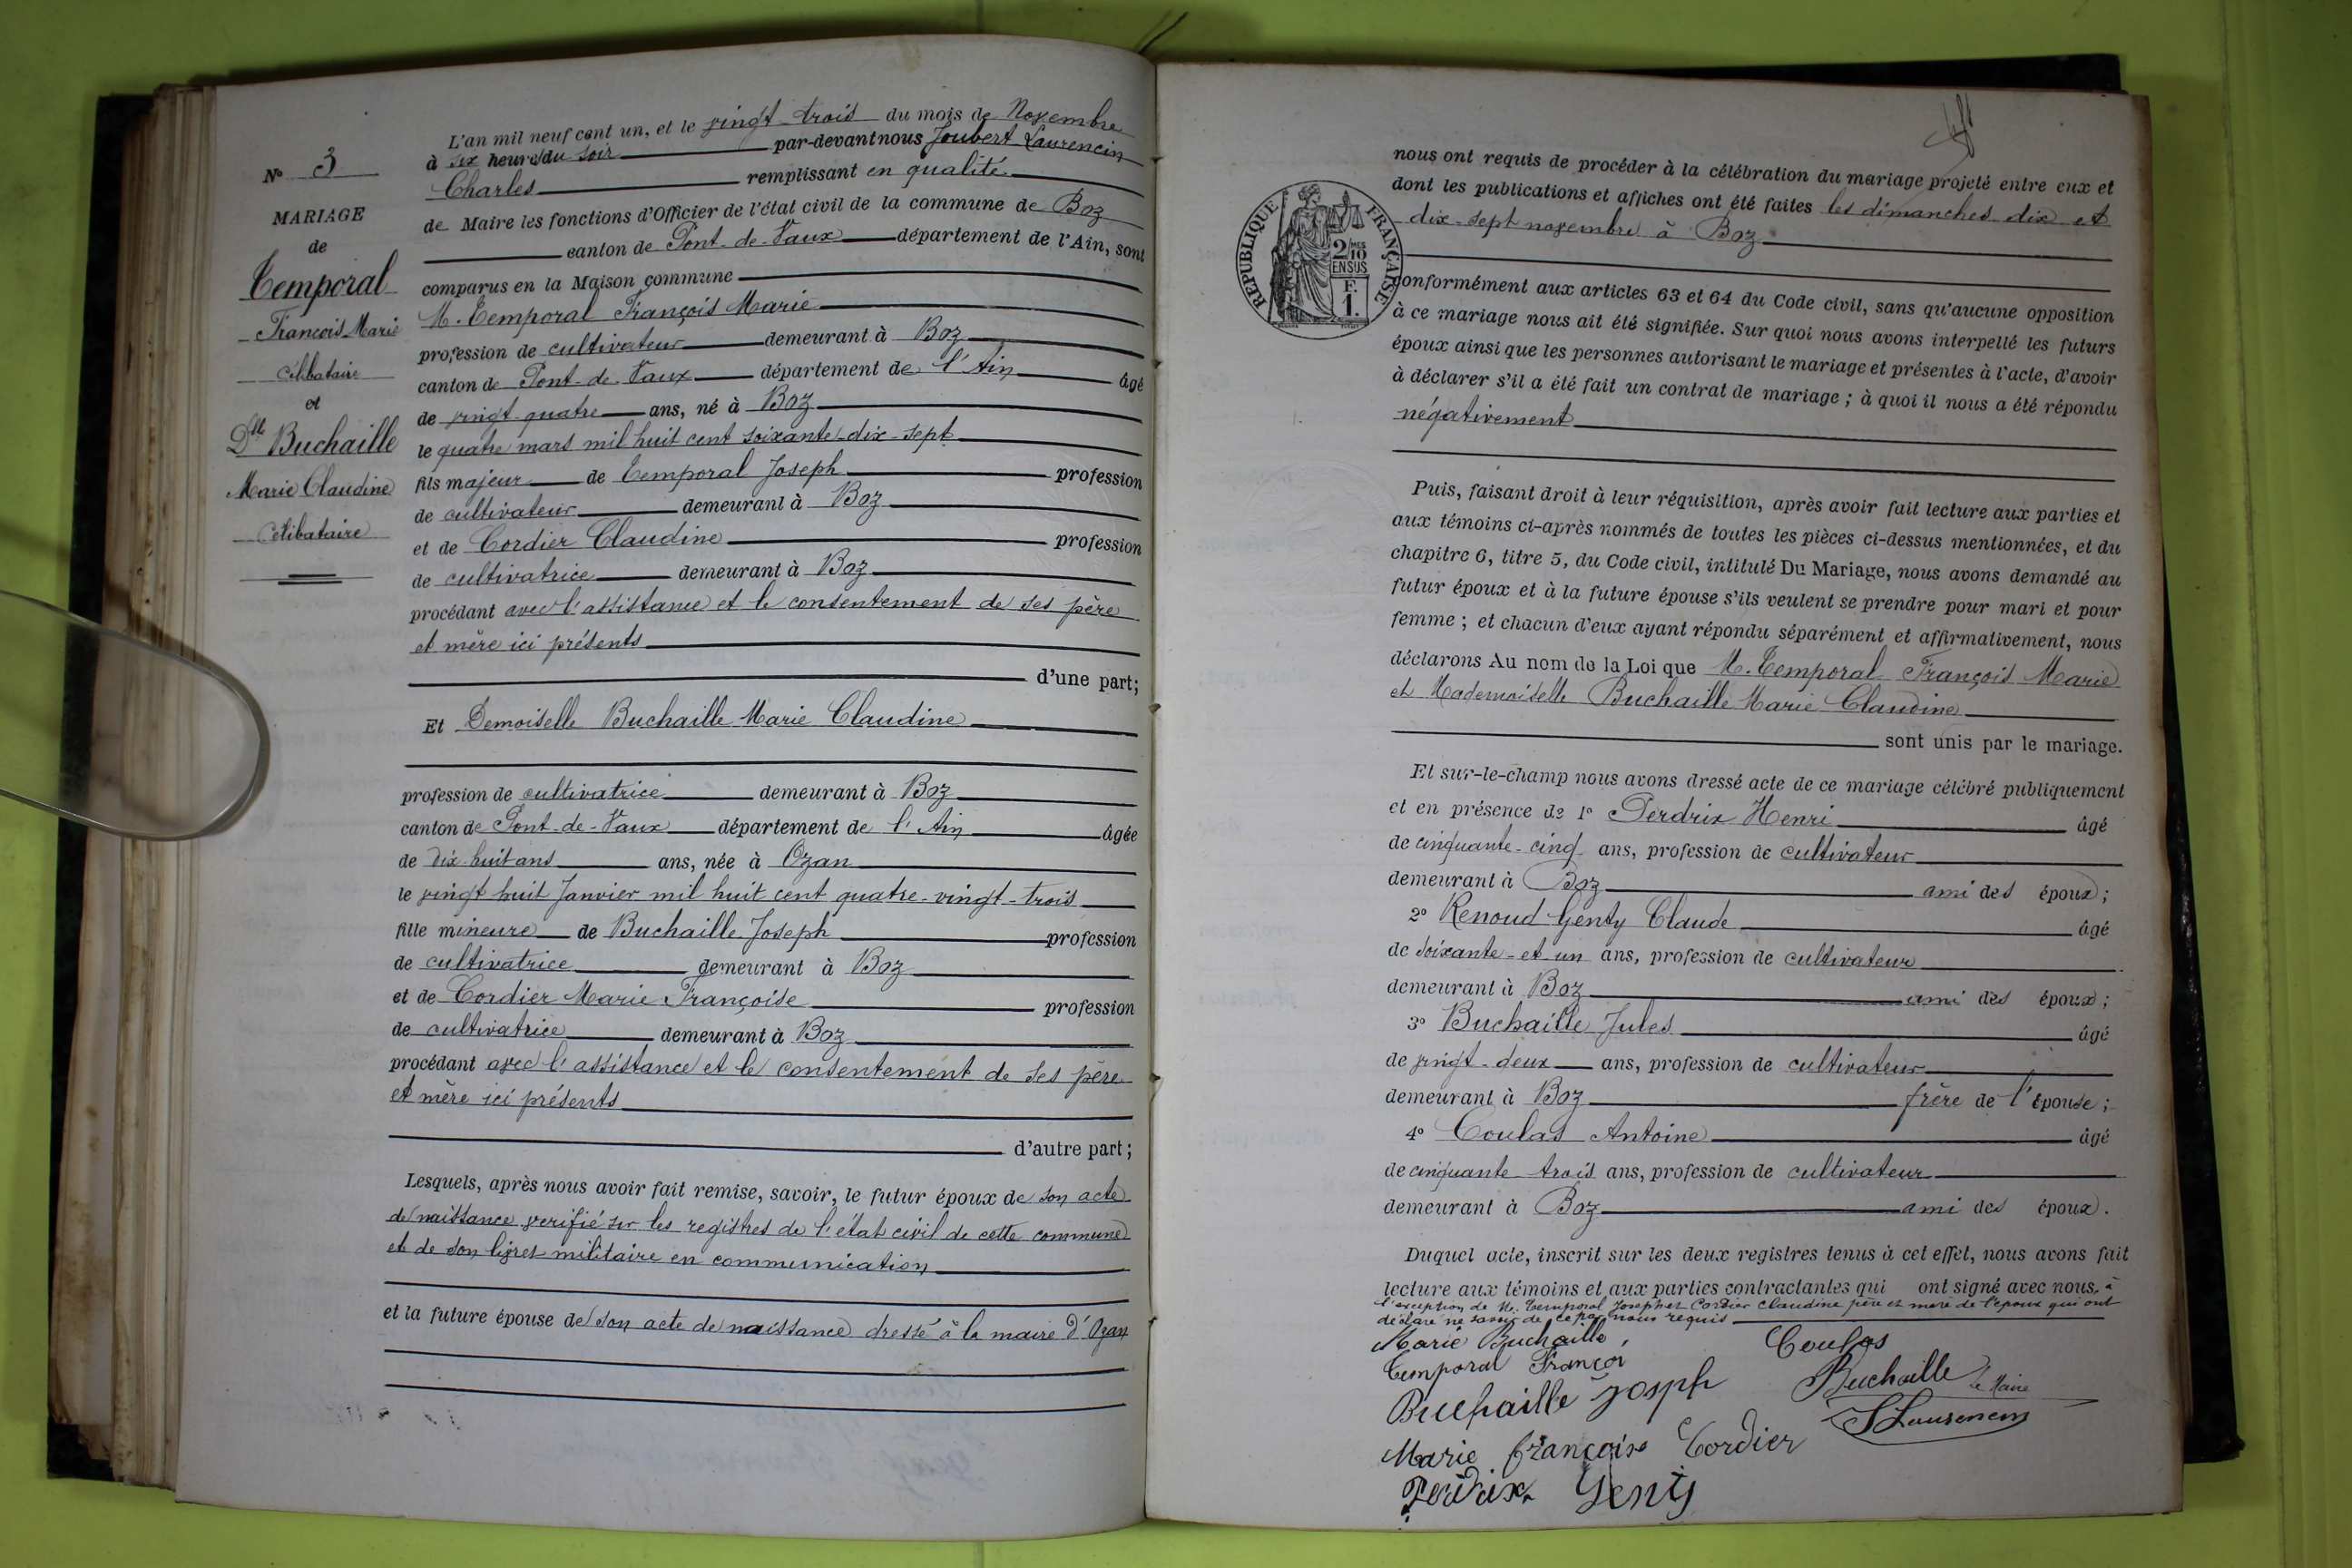 N° 3
MARIAGE
de
Temporal
François Marie
célibataire
et
Dlle Buchaille
Marie Claudine
célibataire
L'an mil neuf cent un, et le vingt-trois du mois de Novembre
à six heure du soir par-devant nous Joubert Laurencin
Charles remplissant en qualité
de Maire les fonctions d'Officier de l'état civil de la commune de Boz
canton de Pont-de-Vaux département de l'Ain, sont
comparus en la Maison commune
M. Temporal François Marie
profession de cultivateur demeurant à Boz
canton de Pont-de-Vaux département de l'Ain âgé
de vingt-quatre ans, né à Boz
le quatre mars mil huit cent soixante-dix-sept
fils majeur de Temporal Joseph profession
de cultivateur demeurant à Boz
et de Cordier Claudine profession
de cultivatrice demeurant à Boz
procédant avec l'assistance et le consentement de ses père
et mère ici présents
d'une part;
Et Demoiselle Buchaille Marie Claudine
profession de cultivatrice demeurant à Boz
canton de Pont-de-Vaux département de l'Ain âgée
de dix-huit ans ans, née à Ozan
le vingt huit Janvier mil huit cent quatre-vingt-trois
fille mineure de Buchaille Joseph profession
de cultivatrice demeurant à Boz
et de Cordier Marie Françoise profession
de cultivatrice demeurant à Boz
procédant avec l'assistance et le consentement de ses père
et mère ici présents
d'autre part;
Lesquels, après nous avoir fait remise, savoir, le futur époux de son acte
de naissance verifié sur les registres de l'état civil de cette commune
et de son livret militaire en communication
et la future épouse de son acte de naissance dressé à la maire d'Ozan
RÉPUBLIQUE FRANÇAISE
2/10
EN SUS
F.
1.
nous ont requis de procéder à la célébration du mariage projeté entre eux et
dont les publications et affiches ont été faites les dimanches dix et
dix-sept novembre à Boz
conformément aux articles 63 et 64 du Code civil, sans qu'aucune opposition
à ce mariage nous ait été signifiée. Sur quoi nous avons interpellé les futurs
époux ainsi que les personnes autorisant le mariage et présentes à l'acte, d'avoir
à déclarer s'il a été fait un contrat de mariage; à quoi il nous a été répondu
négativement
Puis, faisant droit à leur réquisition, après avoir fait lecture aux parties et
aux témoins ci-après nommés de toutes les pièces ci-dessus mentionnées, et du
chapitre 6, titre 5, du Code civil, intitulé Du Mariage, nous avons demandé au
futur époux et à la future épouse s'ils veulent se prendre pour mari et pour
femme; et chacun d'eux ayant répondu séparément et affirmativement, nous
déclarons Au nom de la Loi que M. Temporal François Marie
et Mademoiselle Buchaille Marie Claudine
sont unis par le mariage.
Et sur-le-champ nous avons dressé acte de ce mariage célébré publiquement
et en présence de 1° Perdrix Henri âgé
de cinquante-cinq ans, profession de cultivateur
demeurant à Boz ami des époux;
2° Renoud Genty Claude âgé
de soixante-et-un ans, profession de cultivateur
demeurant à Boz ami des époux;
3° Buchaille Jules âgé
de vingt-deux ans, profession de cultivateur
demeurant à Boz frère de l'épouse;
4° Coulas Antoine âgé
de cinquante trois ans, profession de cultivateur
demeurant à Boz ami des époux.
Duquel acte, inscrit sur les deux registres tenus à cet effet, nous avons fait
lecture aux témoins et aux parties contractantes qui ont signé avec nous, à
l'exception de M. Temporal Joseph et Cordier Claudine père et mère de l'époux qui ont
déclaré ne savoir de ce par nous requis
Marie Buchaille
Coulas
Temporal Françoi
Buchaille Josph
Buchaille
le Maire
Marie françoise Cordier
J Laurencin
Perdrix Genty